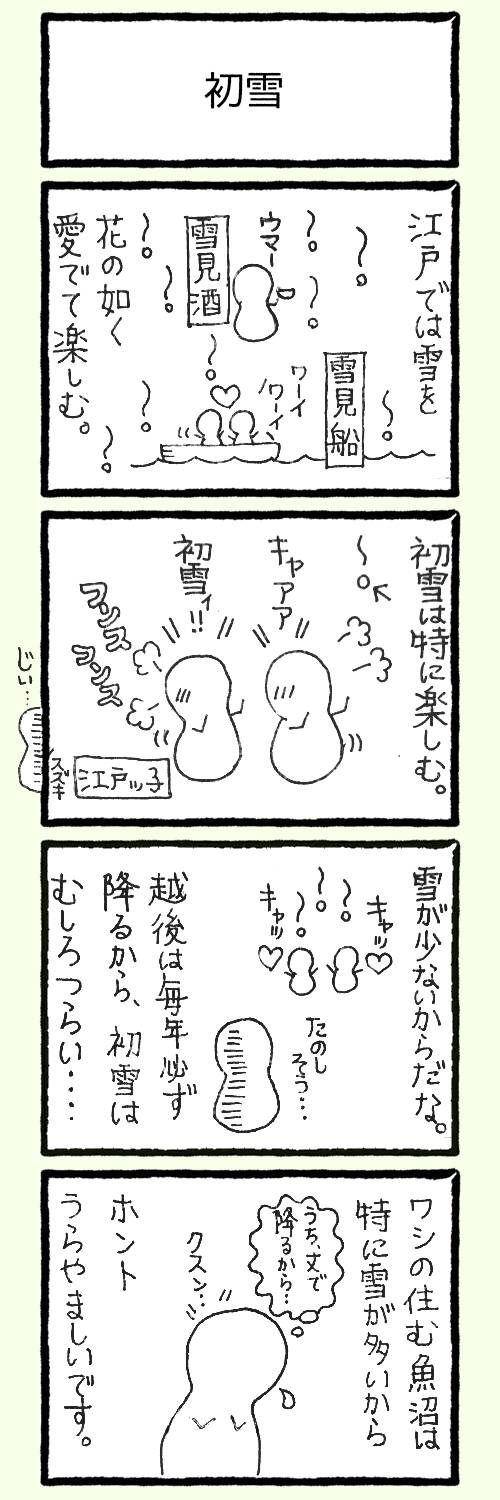 初雪
江戸では雪を
ウマー
雪見酒
雪見船
ワーイ
ワーイ
花の如く
愛でて楽しむ。
初雪は特に楽しむ。
キャアア
初雪ィ!!
フンス
フンス
江戸ッ子
じい…
スズキ
雪が少ないからだな。
キャッ♡
キャッ♡
たのし
そう…
越後は毎年必ず
降るから、初雪は
むしろつらい‥‥
ワシの住む魚沼は
特に雪が多いから
うち、丈で
降るから…
クスン…
ホント
うらやましいです。